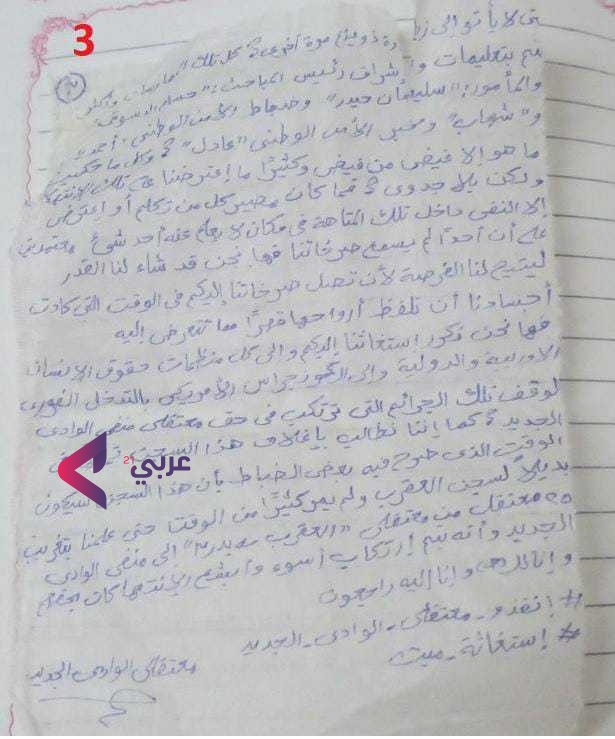 3
٢
حتى لا يأتوا إلى زيارة ذويهم مرة أخرى كل تلك
يتم بتعليمات وإشراف رئيس المباحث: "حسام الدسوقي"
والمأمور: "سليمان حيدر" وضباط الأمن الوطني: أحمد
و"شهاب" ومخبر الأمن الوطني "عادل" وكل ما حكيناه
ما هو إلا فيض من فيض وكثيرًا ما إعترضنا على تلك
ولكن بلا جدوى فما كان مصير كل من تكلم أو إعترض
إلا النفي داخل تلك المتاهة في مكان لا يعلم عنه أحد شئ معتمدين
على أن أحدًا لم يسمع صرخاتنا فها نحن قد شاء لنا القدر
ليتيح لنا الفرصة لأن تصل صرخاتنا إليكم في الوقت التي كادت
أجسادنا أن تلفظ أرواحها قهرًا مما تتعرض إليه
فها نحن نكرر إستغاثتنا إليكم وإلى كل منظمات حقوق الإنسان
الأوربية والدولية وإلى الكونجرس الأمريكي بالتدخل الفوري
لوقف تلك الجرائم التي ترتكب في حق معتقلي منفى الوادي
الجديد كما إننا نطالب بإغلاق هذا السجن
الوقت الذي صرح فيه بعض الضباط بأن هذا السجن سيكون
بديلًا لسجن العقرب ولم يمر كثيرًا من الوقت حتى علمنا بتغريب
معتقل من معتقلي "العقرب" إلى منفى الوادي
الجديد وأنه يتم إرتكاب أسوء وأبشع الإنتهاكات بحقهم
وإنا لله وإنا إليه راجعون
# إنقذو - معتقلي - الوادي - الجديد
# إستغاثة - ميت
معتقلي الوادي الجديد
عربي21